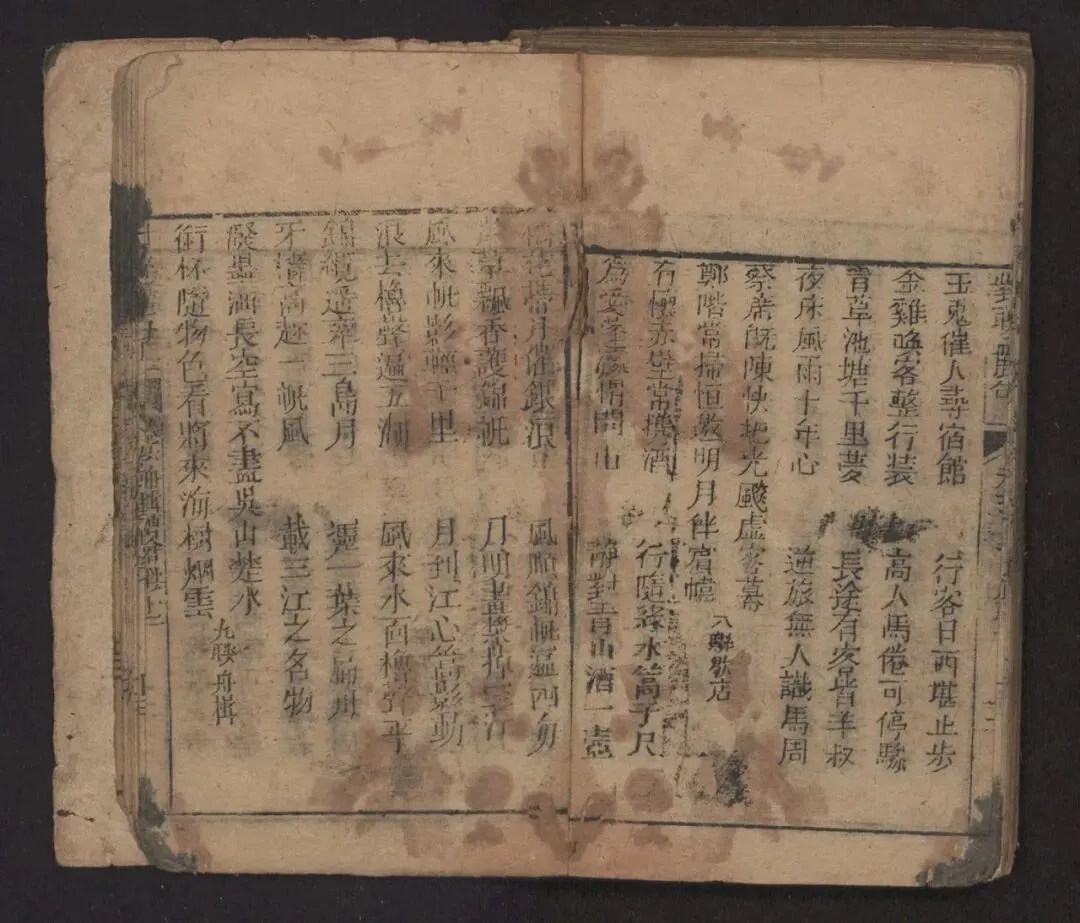 玉兎催人尋宿館 行客日西堪止步
金雞喚客整行裝 高人馬倦可停驂
青草池塘千里夢 長途有客皆羊叔
夜床風雨十年心 逆旅無人識馬周
蔡席既陳快地光颷虛客幕
鄭階常掃恒邀明月伴賓幃
八聯歇店
有懷赤壁常携酒 行隨綠水篙子尺
為愛 情問山 靜對青山酒一壺
帶月催銀 風順錦帆
飄香護錦帆 月明畫槳
風來帆影輕千里 月到江心篙影動
浪去櫓聲遍五湖 風來水面櫓聲平
錦纜遥牽三島月 一葉之扁舟
牙檣高趂一帆風 載三江之名物
長空寫不盡吳山楚水
銜杯隨物色看將來海樹烟雲
九聯舟楫